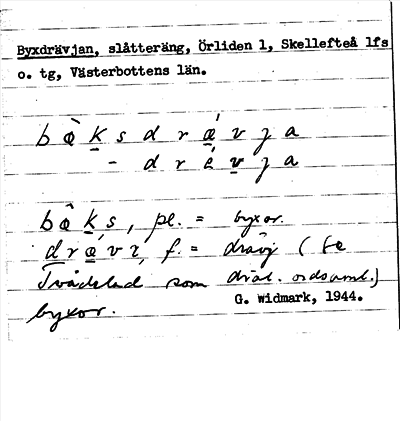 Byxdrävjan, slåtteräng, Örliden 1, Skellefteå lfs
o. tg, Västerbottens län.
bø̀ksdrǽvja
- drévja
bø̂ks, pl. = byxor.
drævi, f. = dräv (se
Tvådelad som dial. ordsaml.)
G. Widmark, 1944.
byxor.